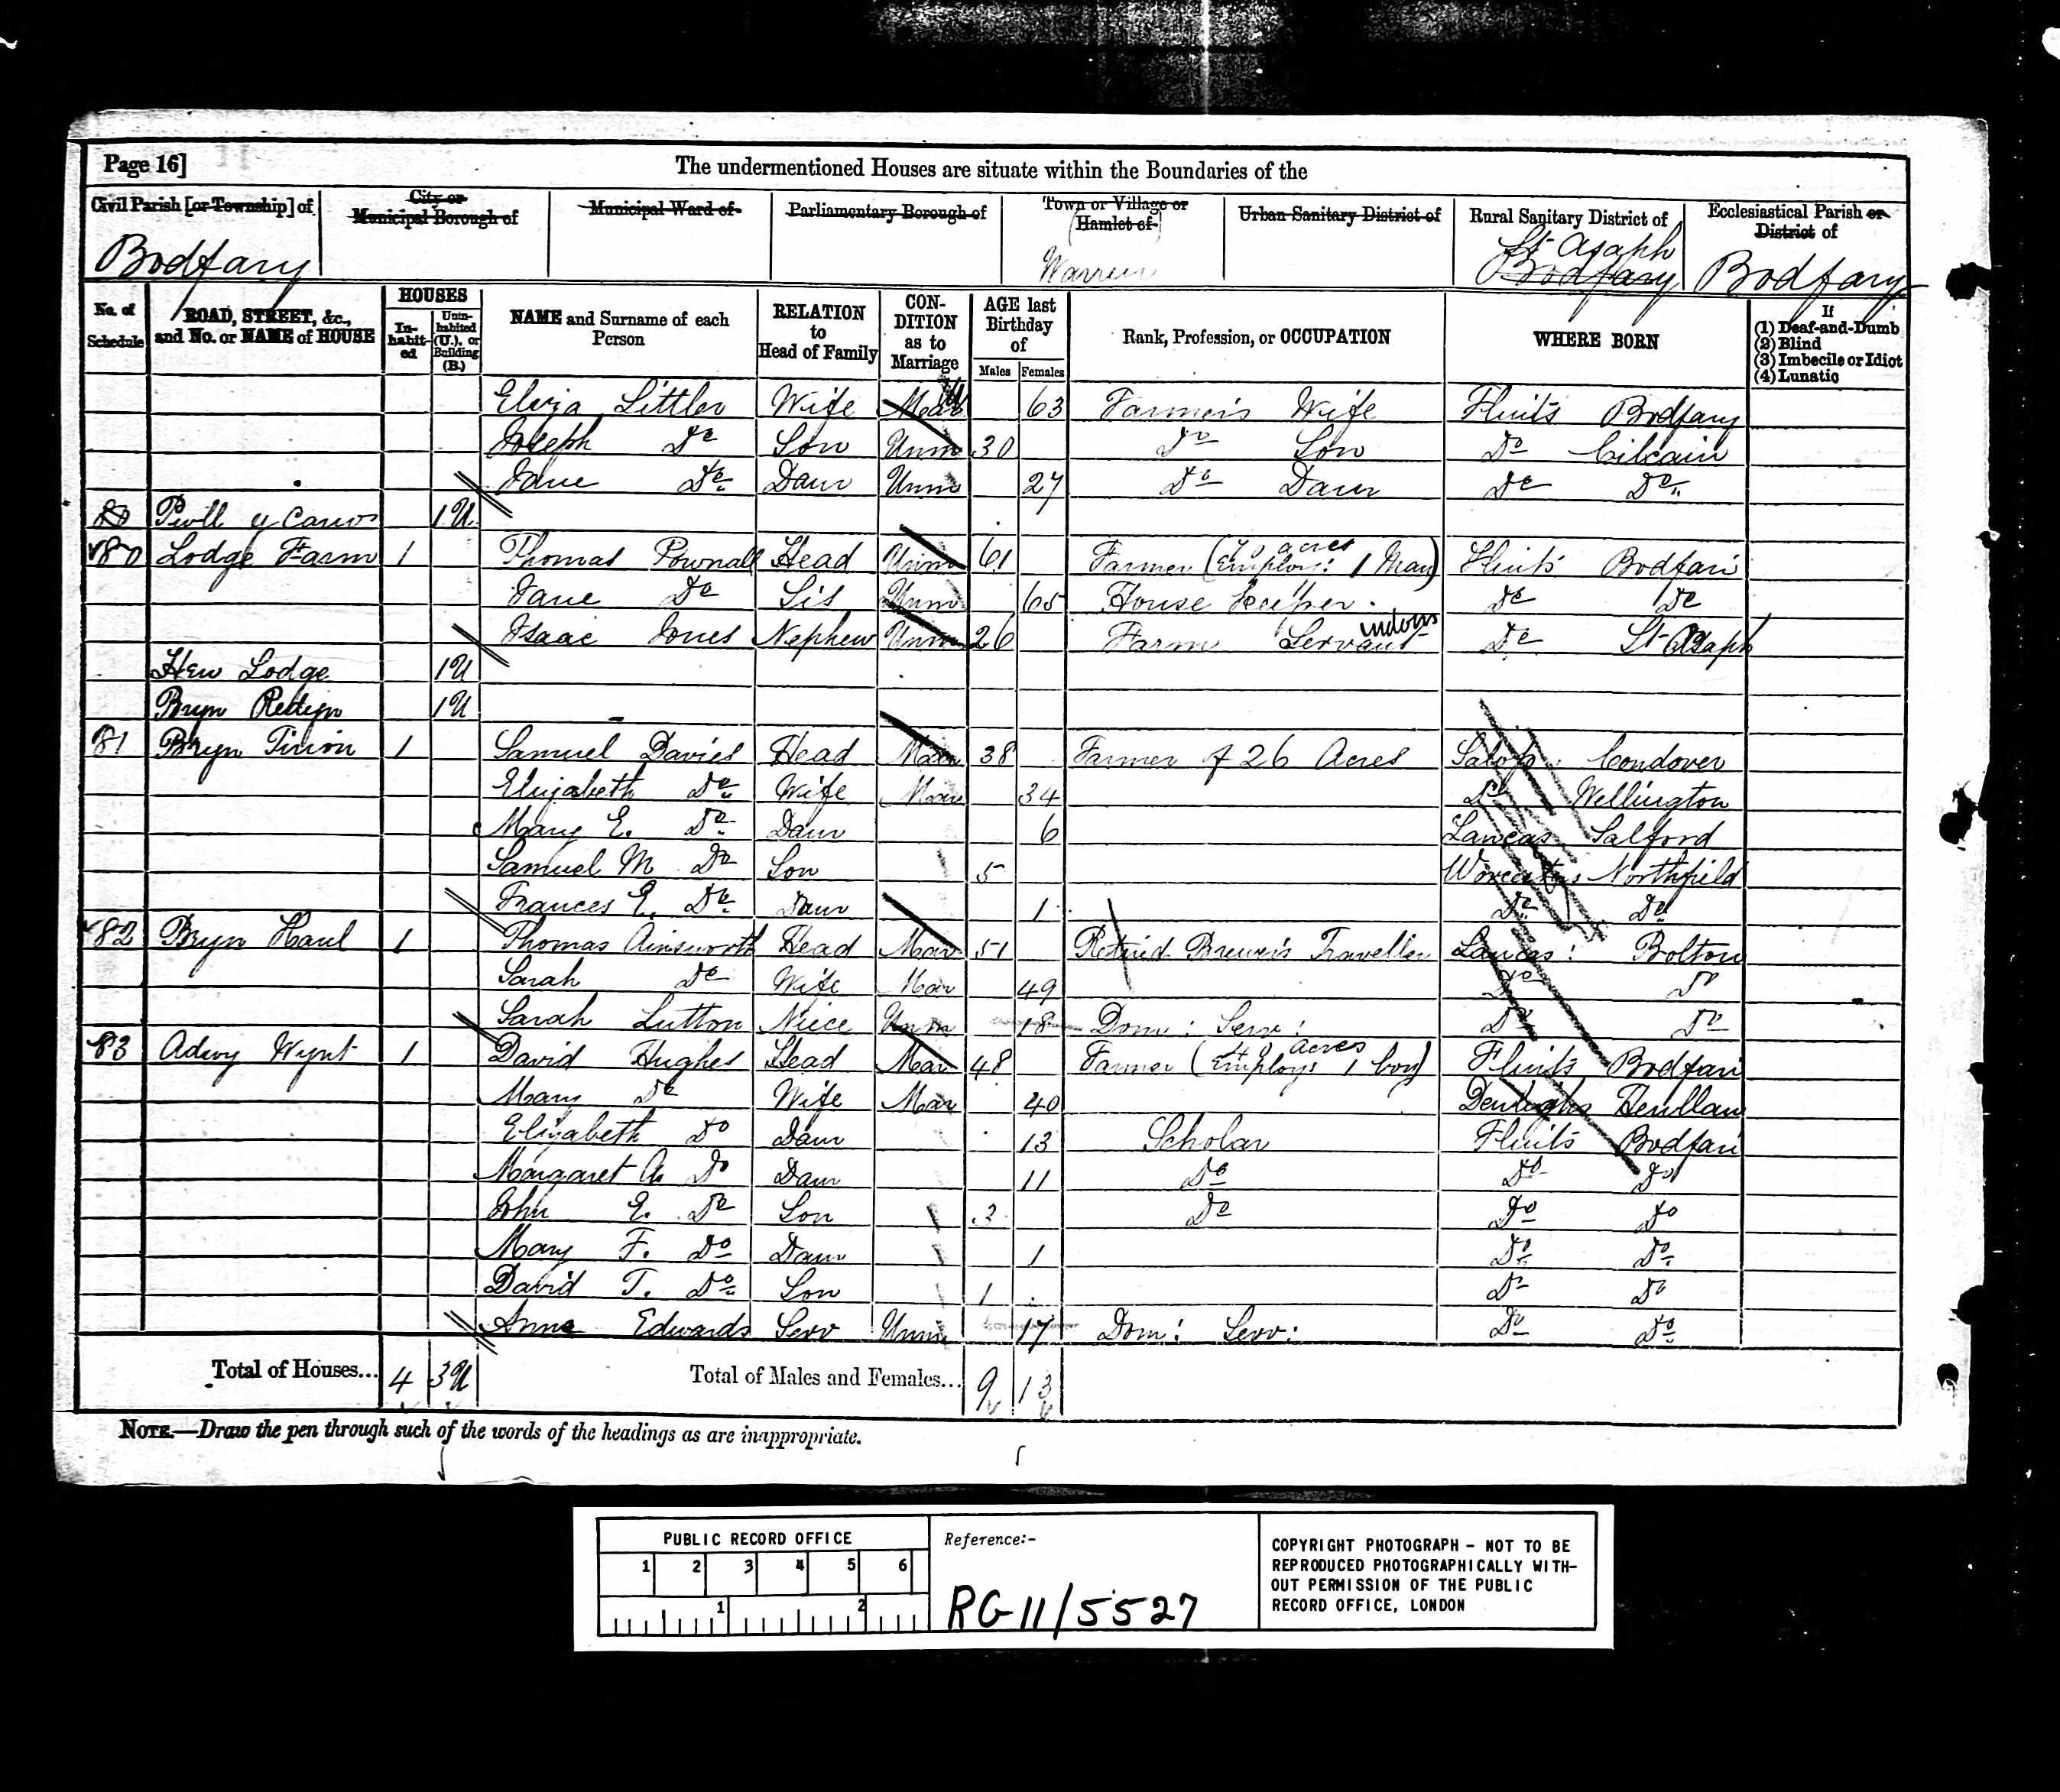 Page 16]
The undermentioned Houses are situate within the Boundaries of the
Civil Parish [or Township] of
City or Municipal Borough of
Municipal Ward of
Parliamentary Borough of
Town or Village or Hamlet of
Urban Sanitary District of
Rural Sanitary District of
Ecclesiastical Parish or District of
Bodfary
Warren
St Asaph
Bodfary
Bodfary
No. of Schedule
ROAD, STREET, &c., and No. or NAME of HOUSE
HOUSES
In-habit-ed
Unin-habited (U.), or Building (B.)
NAME and Surname of each Person
RELATION to Head of Family
CON-DITION as to Marriage
AGE last Birthday of
Males Females
Rank, Profession, or OCCUPATION
WHERE BORN
If
(1) Deaf-and-Dumb
(2) Blind
(3) Imbecile or Idiot
(4) Lunatic
Eliza Littler Wife Mar 63 Farmer's Wife Flints Bodfary
Joseph Do Son Unm 30 Do Son Do Cilcain
Jane Do Daur Unm 27 Do Daur Do Do
80 Pwll y 1 U
80 Lodge Farm 1 Thomas Pownall Head Unm 61 Farmer (70 acres Employs: 1 Man) Flints Bodfari
Jane Do Sis Unm 65 House keeper Do Do
Isaac Jones Nephew Unm 26 Farm Servant indoors Do St Asaph
New Lodge 1 U
Bryn 1 U
81 Bryn Tirion 1 Samuel Davies Head Mar 38 Farmer of 26 Acres Salop Condover
Elizabeth Do Wife Mar 34 Do Wellington
Mary E. Do Daur 6 Lancas Salford
Samuel M Do Son 5 Worcesters Northfield
Frances E. Do Daur 1 Do Do
82 Bryn Haul 1 Thomas Ainsworth Head Mar 51 Retired Brewer's Traveller Lancas: Bolton
Sarah Do Wife Mar 49 Do Do
Sarah Lutton Niece Unm 18 Dom: Serv: Do Do
83 Adwy Wynt 1 David Hughes Head Mar 48 Farmer (40 acres Employs 1 boy) Flints Bodfari
Mary Do Wife Mar 40 Denbighs Henllan
Elizabeth Do Daur 13 Scholar Flints Bodfari
Margaret A. Do Daur 11 Do Do Do
John E. Do Son 3 Do Do Do
Mary F. Do Daur 1 Do Do
David T. Do Son 1 Do Do
Anne Edwards Serv Unm 17 Dom: Serv: Do Do
Total of Houses... 4 3 U Total of Males and Females... 9 13
NOTE.—Draw the pen through such of the words of the headings as are inappropriate.
PUBLIC RECORD OFFICE
1 2 3 4 5 6
1 2
Reference:-
RG 11/5527
COPYRIGHT PHOTOGRAPH - NOT TO BE
REPRODUCED PHOTOGRAPHICALLY WITH-
OUT PERMISSION OF THE PUBLIC
RECORD OFFICE, LONDON